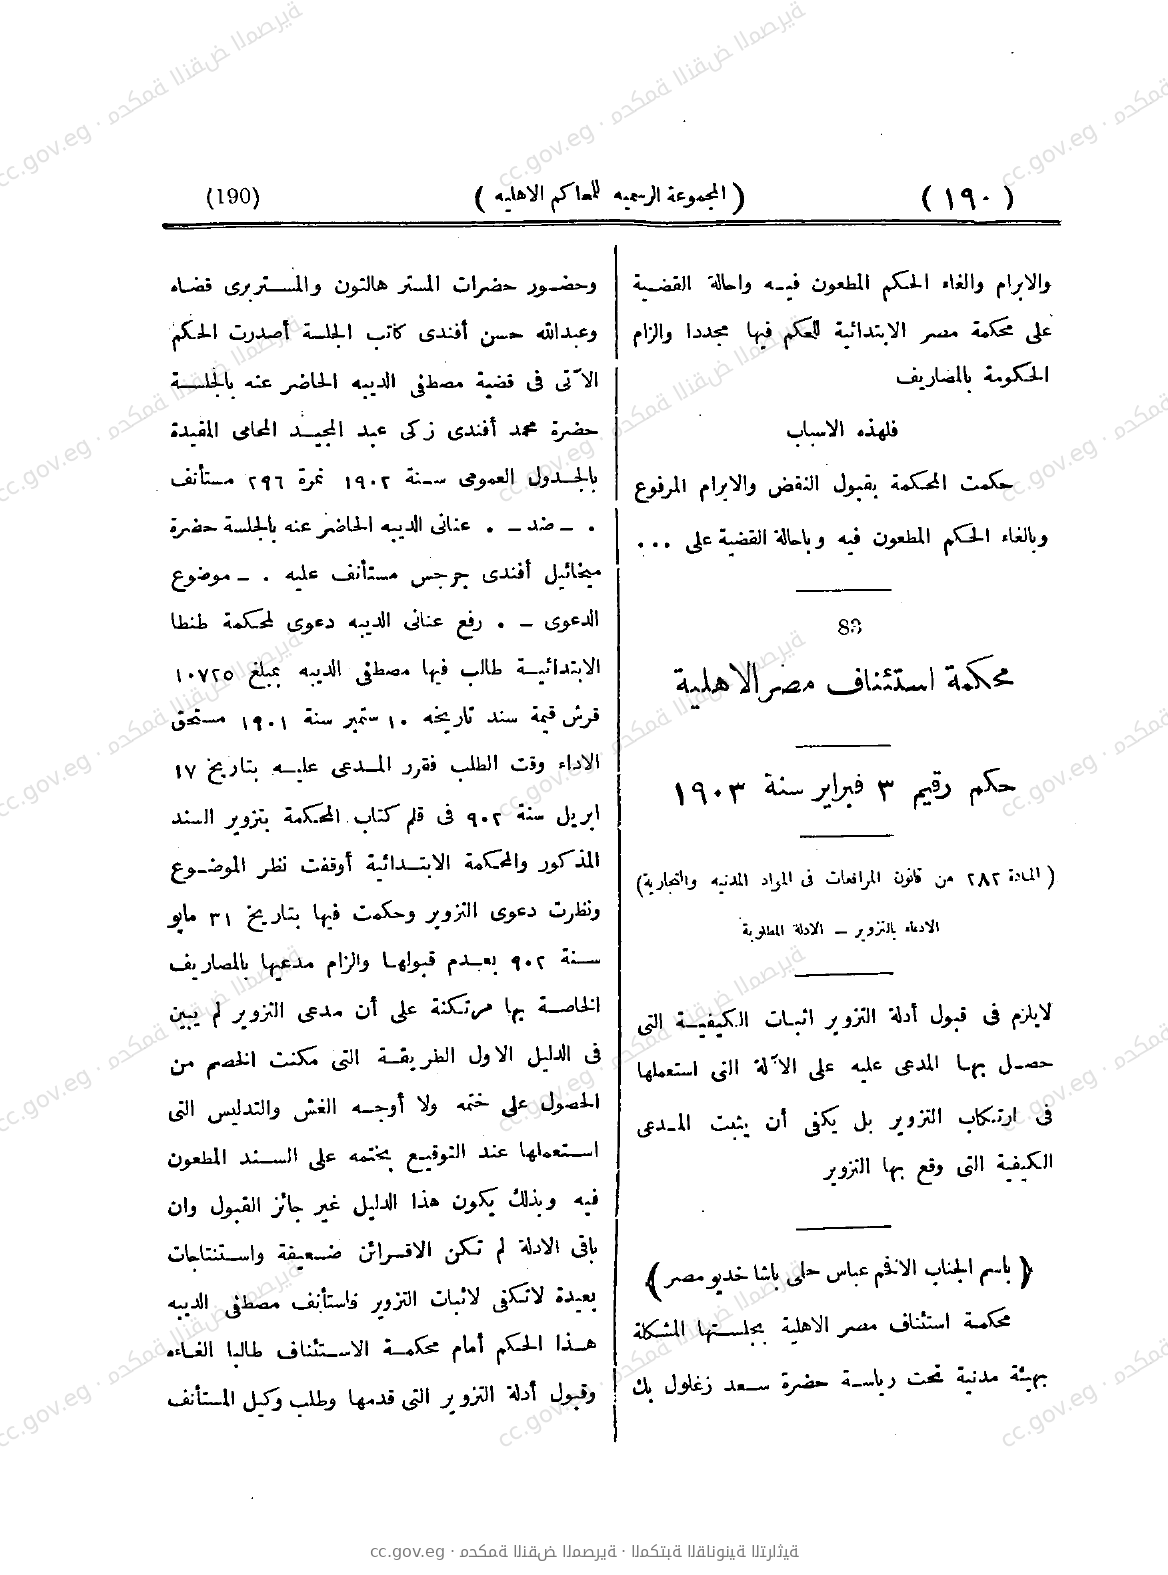 (١٩٠) (المجموعة الرسميه للمحاكم الاهليه) (190)
والابرام والغاء الحكم المطعون فيه واحالة القضية
على محكمة مصر الابتدائية للحكم فيها مجددا والزام
الحكومة بالمصاريف
فلهذه الاسباب
حكمت المحكمة بقبول النقض والابرام المرفوع
وبالغاء الحكم المطعون فيه وباحالة القضية على ...
83
محكمة استئناف مصر الاهلية
حكم رقيم ٣ فبراير سنة ١٩٠٣
(المادة ٢٨٢ من قانون المرافعات فى المواد المدنيه والتجارية)
الادعاء بالتزوير – الادلة المطلوبة
لايلزم فى قبول أدلة التزوير اثبات الكيفية التى
حصل بها المدعى عليه على الآلة التى استعملها
فى ارتكاب التزوير بل يكفى أن يثبت المدعى
الكيفية التى وقع بها التزوير
(باسم الجناب الافخم عباس حلمى باشا خديو مصر)
محكمة استئناف مصر الاهلية بجلستها المشكلة
بهيئة مدنية تحت رياسة حضرة سعد زغلول بك
وحضور حضرات المستر هالتون والمستربرى قضاه
وعبدالله حسن أفندى كاتب الجلسة أصدرت الحكم
الآتى فى قضية مصطفى الديبه الحاضر عنه بالجلسة
حضرة محمد أفندى زكى عبد المجيد المحامى المقيدة
بالجدول العمومى سنة ١٩٠٢ نمرة ٢٩٦ مستأنف
. – ضد – . عنانى الديبه الحاضر عنه بالجلسة حضرة
ميخائيل أفندى جرجس مستأنف عليه . – موضوع
الدعوى – . رفع عنانى الديبه دعوى لمحكمة طنطا
الابتدائية طالب فيها مصطفى الديبه بمبلغ ١٠٧٢٥
قرش قيمة سند تاريخه ١٠ ستمبر سنة ١٩٠١ مستحق
الاداء وقت الطلب فقرر المدعى عليه بتاريخ ١٧
ابريل سنة ٩٠٢ فى قلم كتاب المحكمة بتزوير السند
المذكور والمحكمة الابتدائية أوقفت نظر الموضوع
ونظرت دعوى التزوير وحكمت فيها بتاريخ ٣١ مايو
سنة ٩٠٢ بعدم قبولها والزام مدعيها بالمصاريف
الخاصة بها مرتكنة على أن مدعى التزوير لم يبين
فى الدليل الاول الطريقة التى مكنت الخصم من
الحصول على ختمه ولا أوجه الغش والتدليس التى
استعملها عند التوقيع بختمه على السند المطعون
فيه وبذلك يكون هذا الدليل غير جائز القبول وان
باقى الادلة لم تكن الاقرائن ضعيفة واستنتاجات
بعيدة لاتكفى لاثبات التزوير فاستأنف مصطفى الديبه
هذا الحكم أمام محكمة الاستئناف طالبا الغاءه
وقبول أدلة التزوير التى قدمها وطلب وكيل المستأنف
cc.gov.eg · محكمة النقض المصرية · المكتبة القانونية التراثية